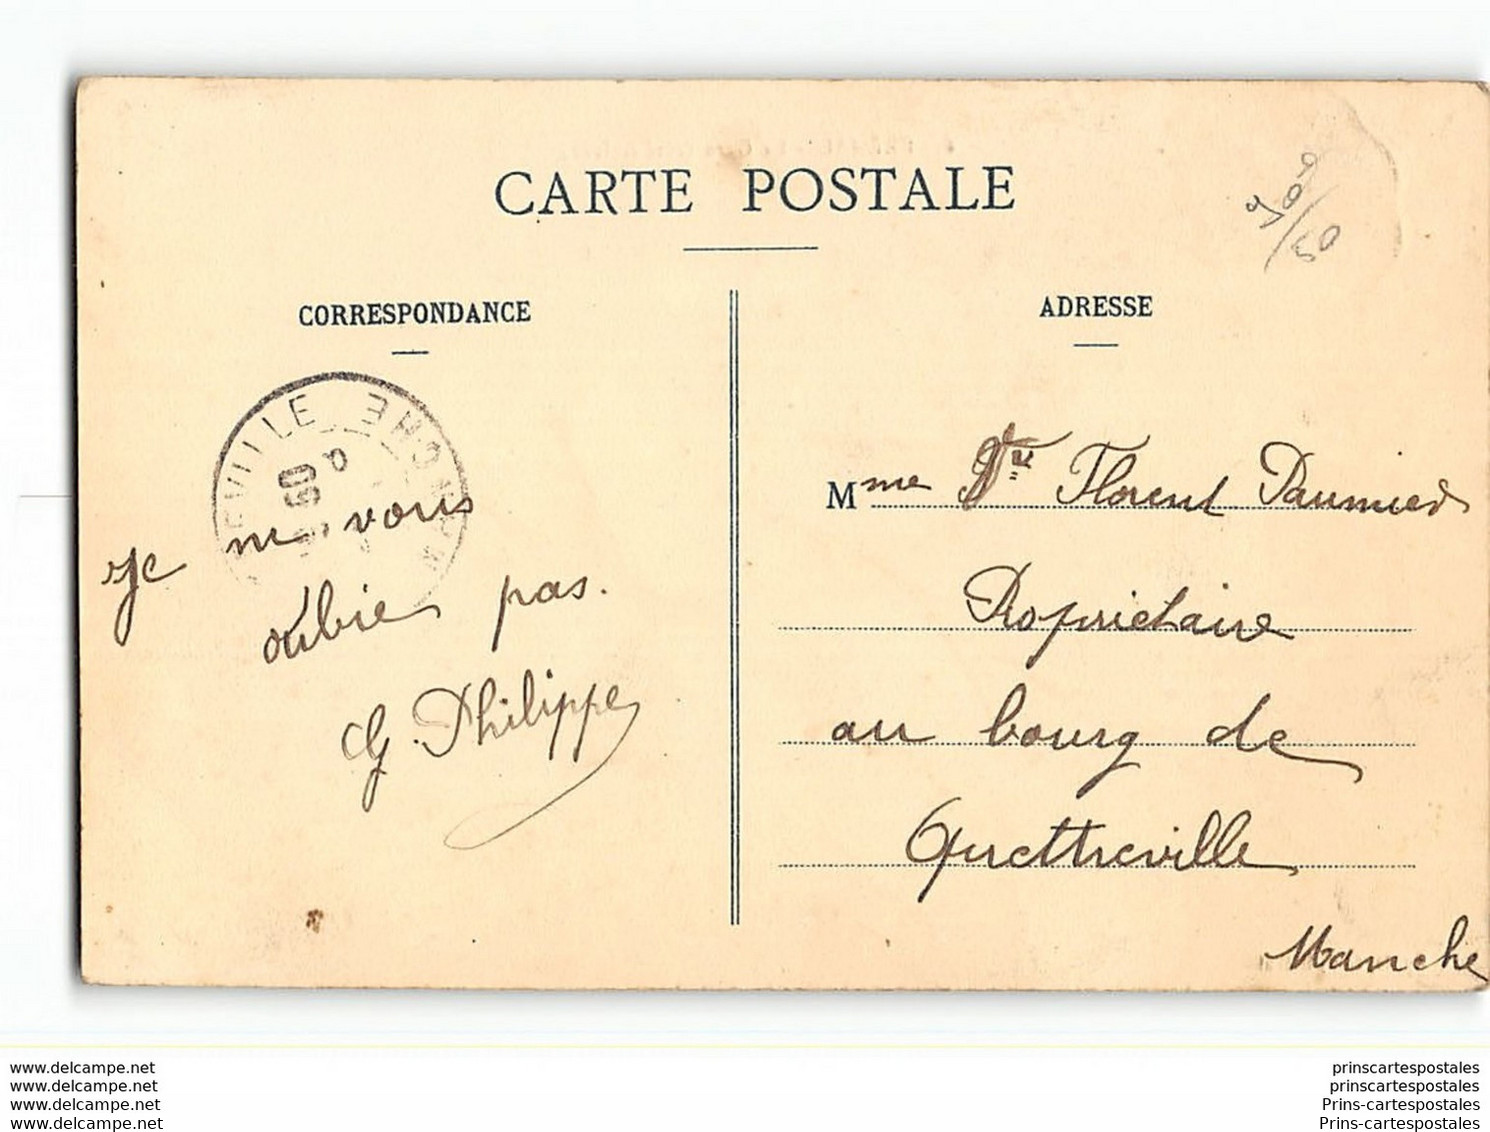 CARTE POSTALE
CORRESPONDANCE
ADRESSE
EVILLE
MANCHE
09
Je ne vous
oublie pas.
G. Philippe
Mme Vve Florent Paumier
Propriétaire
au bourg de
Quettreville
Manche
www.delcampe.net
www.delcampe.net
www.delcampe.net
www.delcampe.net
prinscartespostales
prinscartespostales
Prins-cartespostales
Prins-cartespostales